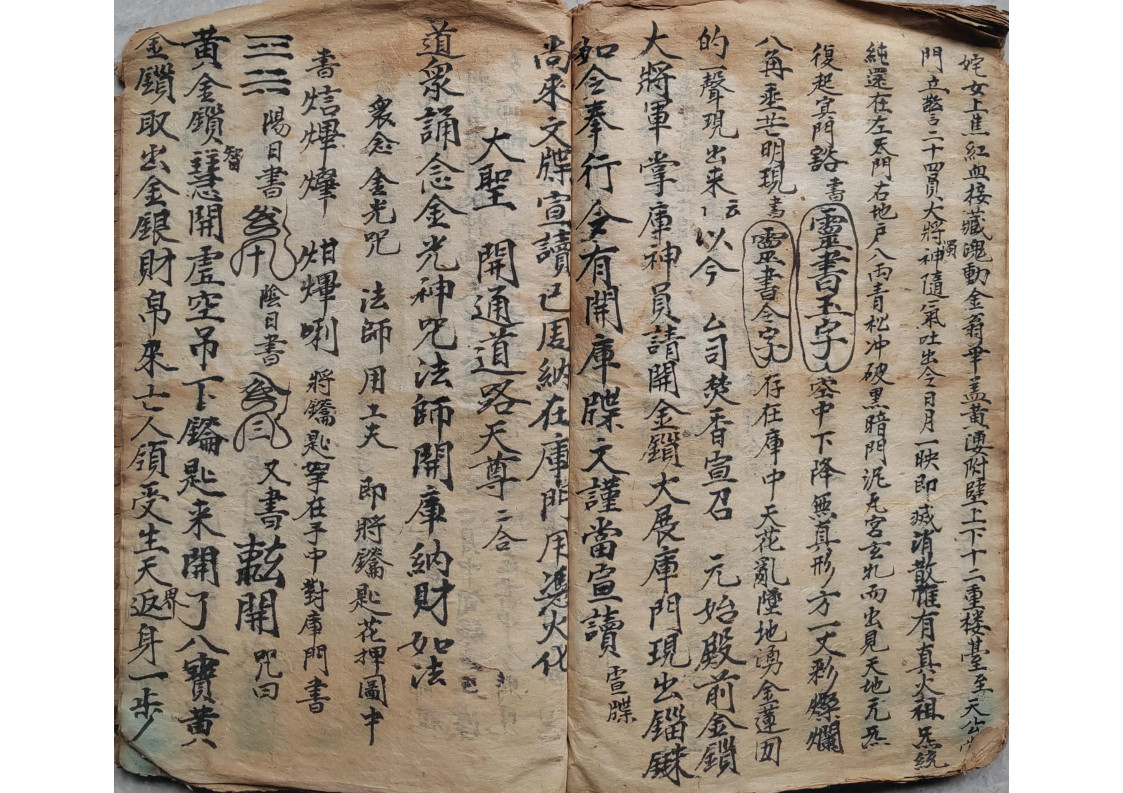 姹女上焦紅血接藏魄動金翁華盖黄婆附壁上下十二重楼臺至天公
門立誓二十四員大將神隨氣吐出令日月一映即滅消散罹有真火祖炁統
純還在左天門右地戸八两青松冲破黑暗門泥丸宮玄牝而出見天地元炁
復起寅門豁書靈書百玉字空中下降無真形方一丈彩燦爛
八角垂芒明現書靈書令字存在庫中天花亂墜地湧金蓮因
的一聲現出来云以今厶司焚香宣召 元始殿前金鎖
大將軍掌庫神員請開金鎖大展庫門現出錙銖
如令奉行今有開庫牒文謹當宣讀 宣牒
尚來文牒宣讀已周納在庫門用憑火化
大聖 開通道路天尊 二合
道衆誦念金光神咒法師開庫納財如法
衆念金光咒 法師用工夫 即將鑰匙花押圖中
書 將鑰匙拏在手中對庫門書
陽日書 陰日書 又書 開 咒曰
黄金鎖智慧開虚空吊下鑰匙来開了八寶黄
金鎖取出金銀財帛來亡人領受生天界返身一步